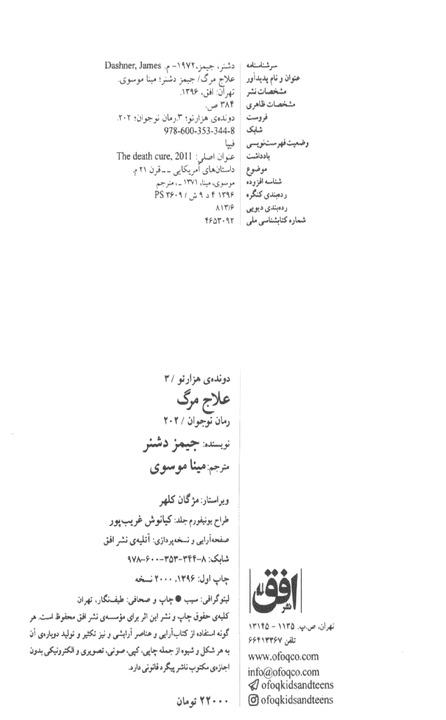 سرشناسه دشنر، جیمز،۱۹۷۲- م. Dashner, James
عنوان و نام پدیدآور علاج مرگ/ جیمز دشنر؛ مینا موسوی.
مشخصات نشر تهران: افق، ۱۳۹۶.
مشخصات ظاهری ۳۸۴ ص.
فروست دونده‌ی هزارتو؛ ۳.رمان نوجوان؛ ۲۰۲.
شابک 978-600-353-344-8
وضعیت فهرست‌نویسی فیپا
یادداشت عنوان اصلی: The death cure, 2011
موضوع داستان‌های آمریکایی -- قرن ۲۱ م.
شناسه افزوده موسوی، مینا، ۱۳۷۱ -، مترجم
رده‌بندی کنگره ۱۳۹۶ ۴ د ۹ ش / PS ۳۶۰۹
رده‌بندی دیویی ۸۱۳/۶
شماره کتابشناسی ملی ۴۶۵۳۰۹۲
دونده‌ی هزارتو / ۳
علاج مرگ
رمان نوجوان / ۲۰۲
نویسنده: جیمز دشنر
مترجم: مینا موسوی
ویراستار: مژگان کلهر
طراح یونیفورم جلد: کیانوش غریب‌پور
صفحه‌آرایی و نسخه‌پردازی: آتلیه‌ی نشر افق
شابک: ۸-۳۴۴-۳۵۳-۶۰۰-۹۷۸
چاپ اول: ۱۳۹۶، ۲۰۰۰ نسخه
لیتوگرافی: سیب ● چاپ و صحافی: طیف‌نگار، تهران
کلیه‌ی حقوق چاپ و نشر این اثر برای مؤسسه‌ی نشر افق محفوظ است. هر
گونه استفاده از کتاب‌آرایی و عناصر آرایشی و نیز تکثیر و تولید دوباره‌ی آن
به هر شکل و شیوه از جمله چاپی، کپی، صوتی، تصویری و الکترونیکی بدون
اجازه‌ی مکتوب ناشر پیگرد قانونی دارد.
۲۲۰۰۰ تومان
نشر افق
تهران، ص.پ. ۱۱۳۵ - ۱۳۱۴۵
تلفن ۶۶۴۱۳۳۶۷
www.ofoqco.com
info@ofoqco.com
ofoqkidsandteens
ofoqkidsandteens